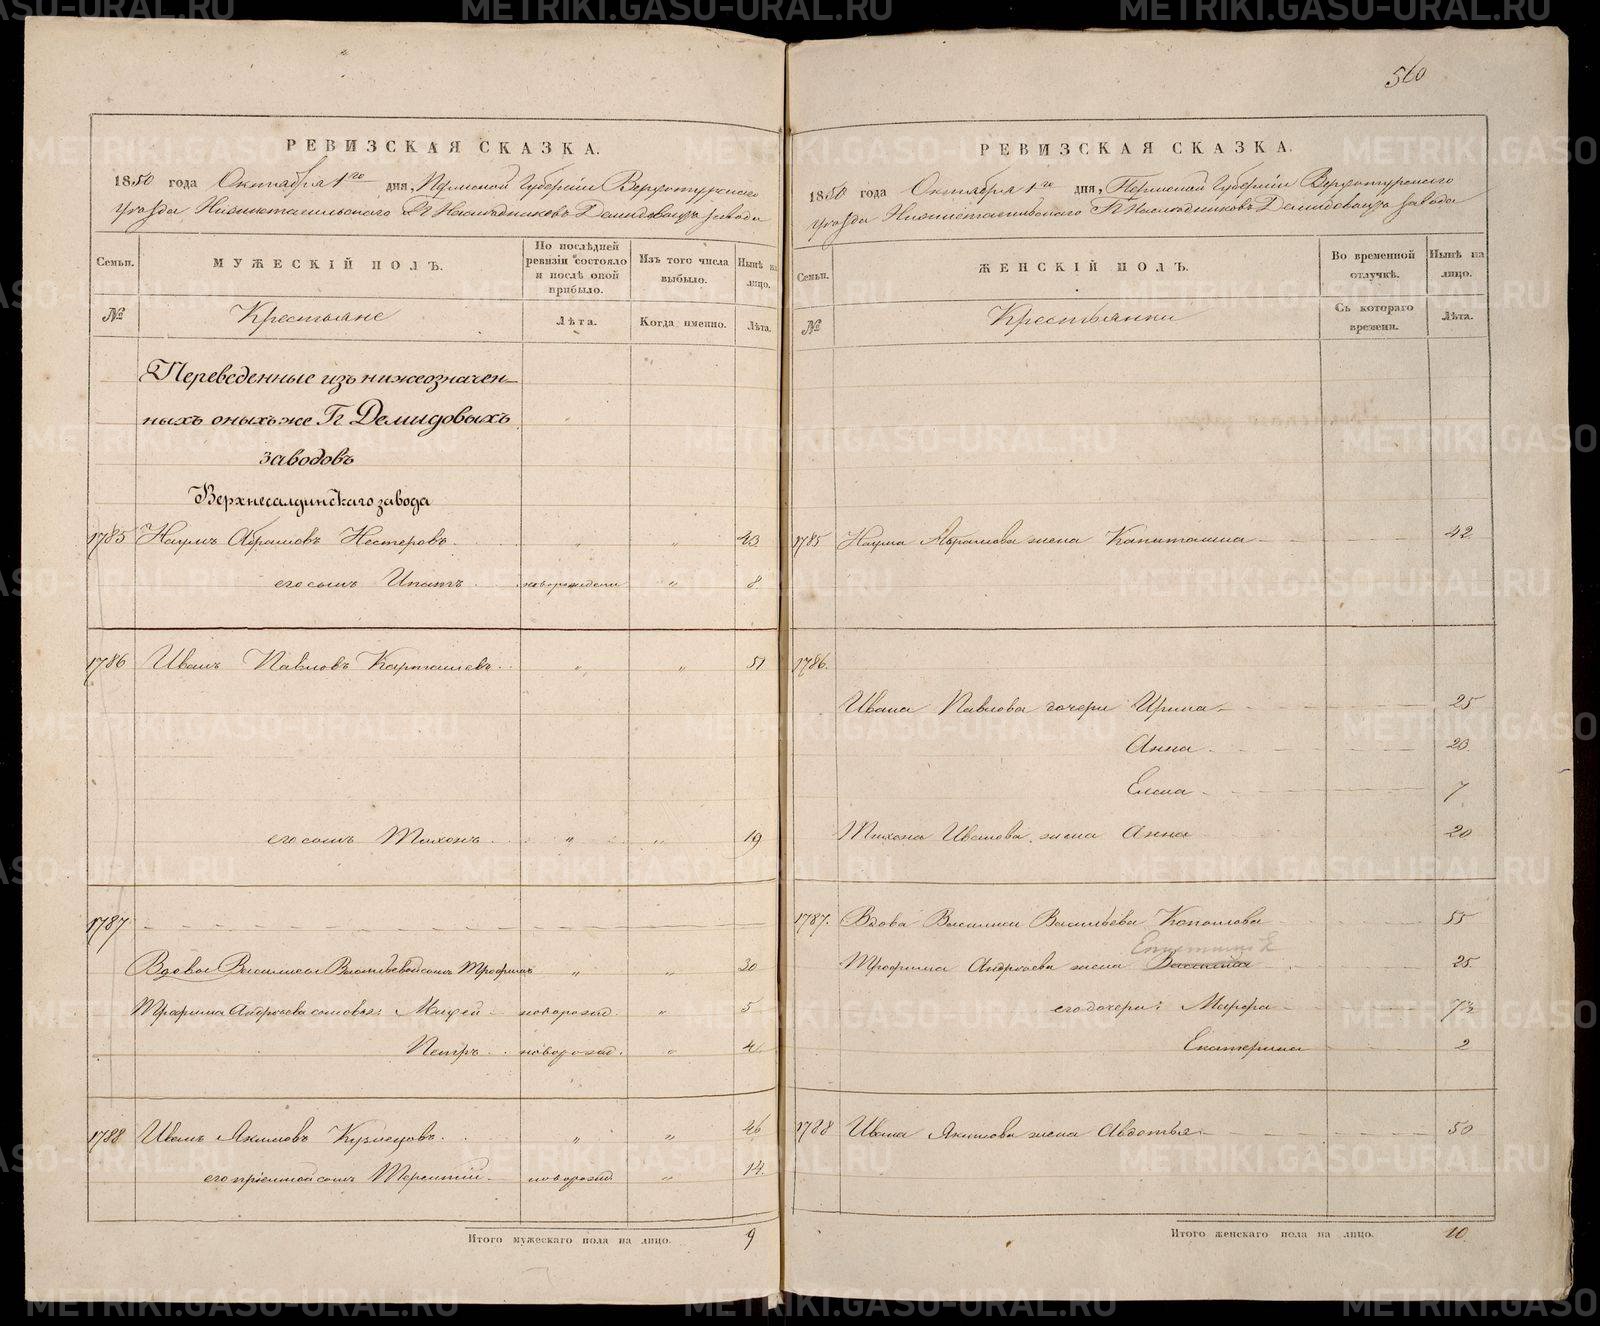 560
РЕВИЗСКАЯ СКАЗКА.
1850 года Октября 1го дня, Пермской Губерніи Верхотурскаго
уѣзда Нижнетагильскаго Гг Наслѣдниковъ Демидовыхъ завода
Семьи.
МУЖЕСКІЙ ПОЛЪ.
По послѣдней ревизіи состояло и послѣ оной прибыло.
Изъ того числа выбыло.
Нынѣ на лицо.
№
Крестьяне
Лѣта.
Когда именно.
Лѣта.
Переведенные изъ нижеозначен-
ныхъ оныхъ же Гг Демидовыхъ
заводовъ
Верхнесалдинскаго завода
1785 Наумъ Абрамовъ Нестеровъ. „ „ 43
его сынъ Ипатъ новорожден „ 8
1786 Иванъ Павловъ Карташевъ „ „ 51
его сынъ Тихонъ „ „ 19
1787
Вдовы Василисы Васильевой сынъ Трофимъ „ „ 30
Трофима Андреева сыновья: Мокей новорожд. „ 5
Петръ новорожд. „ 4
1788 Иванъ Якимовъ Кузнецовъ. „ „ 46
его пріемной сынъ Терентій новорожд. „ 14.
Итого мужескаго пола на лицо. 9
РЕВИЗСКАЯ СКАЗКА.
1850 года Октября 1го дня, Пермской Губерніи Верхотурскаго
уѣзда Нижнетагильскаго Гг Наслѣдниковъ Демидовыхъ завода
Семьи.
ЖЕНСКІЙ ПОЛЪ.
Во временной отлучкѣ.
Нынѣ на лицо.
№
Крестьянки
Съ котораго времени.
Лѣта.
1785 Наума Абрамова жена Капитолина 42
1786.
Ивана Павлова дочери Ирина 25
Анна 23
Елена 7
Тихона Иванова жена Анна 20
1787. Вдова Василиса Васильева 55
Трофима Андреева жена 25
его дочери: Марфа 7½
Екатерина 2
1788 Ивана Якимова жена Авдотья 50
Итого женскаго пола на лицо. 10
METRIKI.GASO-URAL.RU